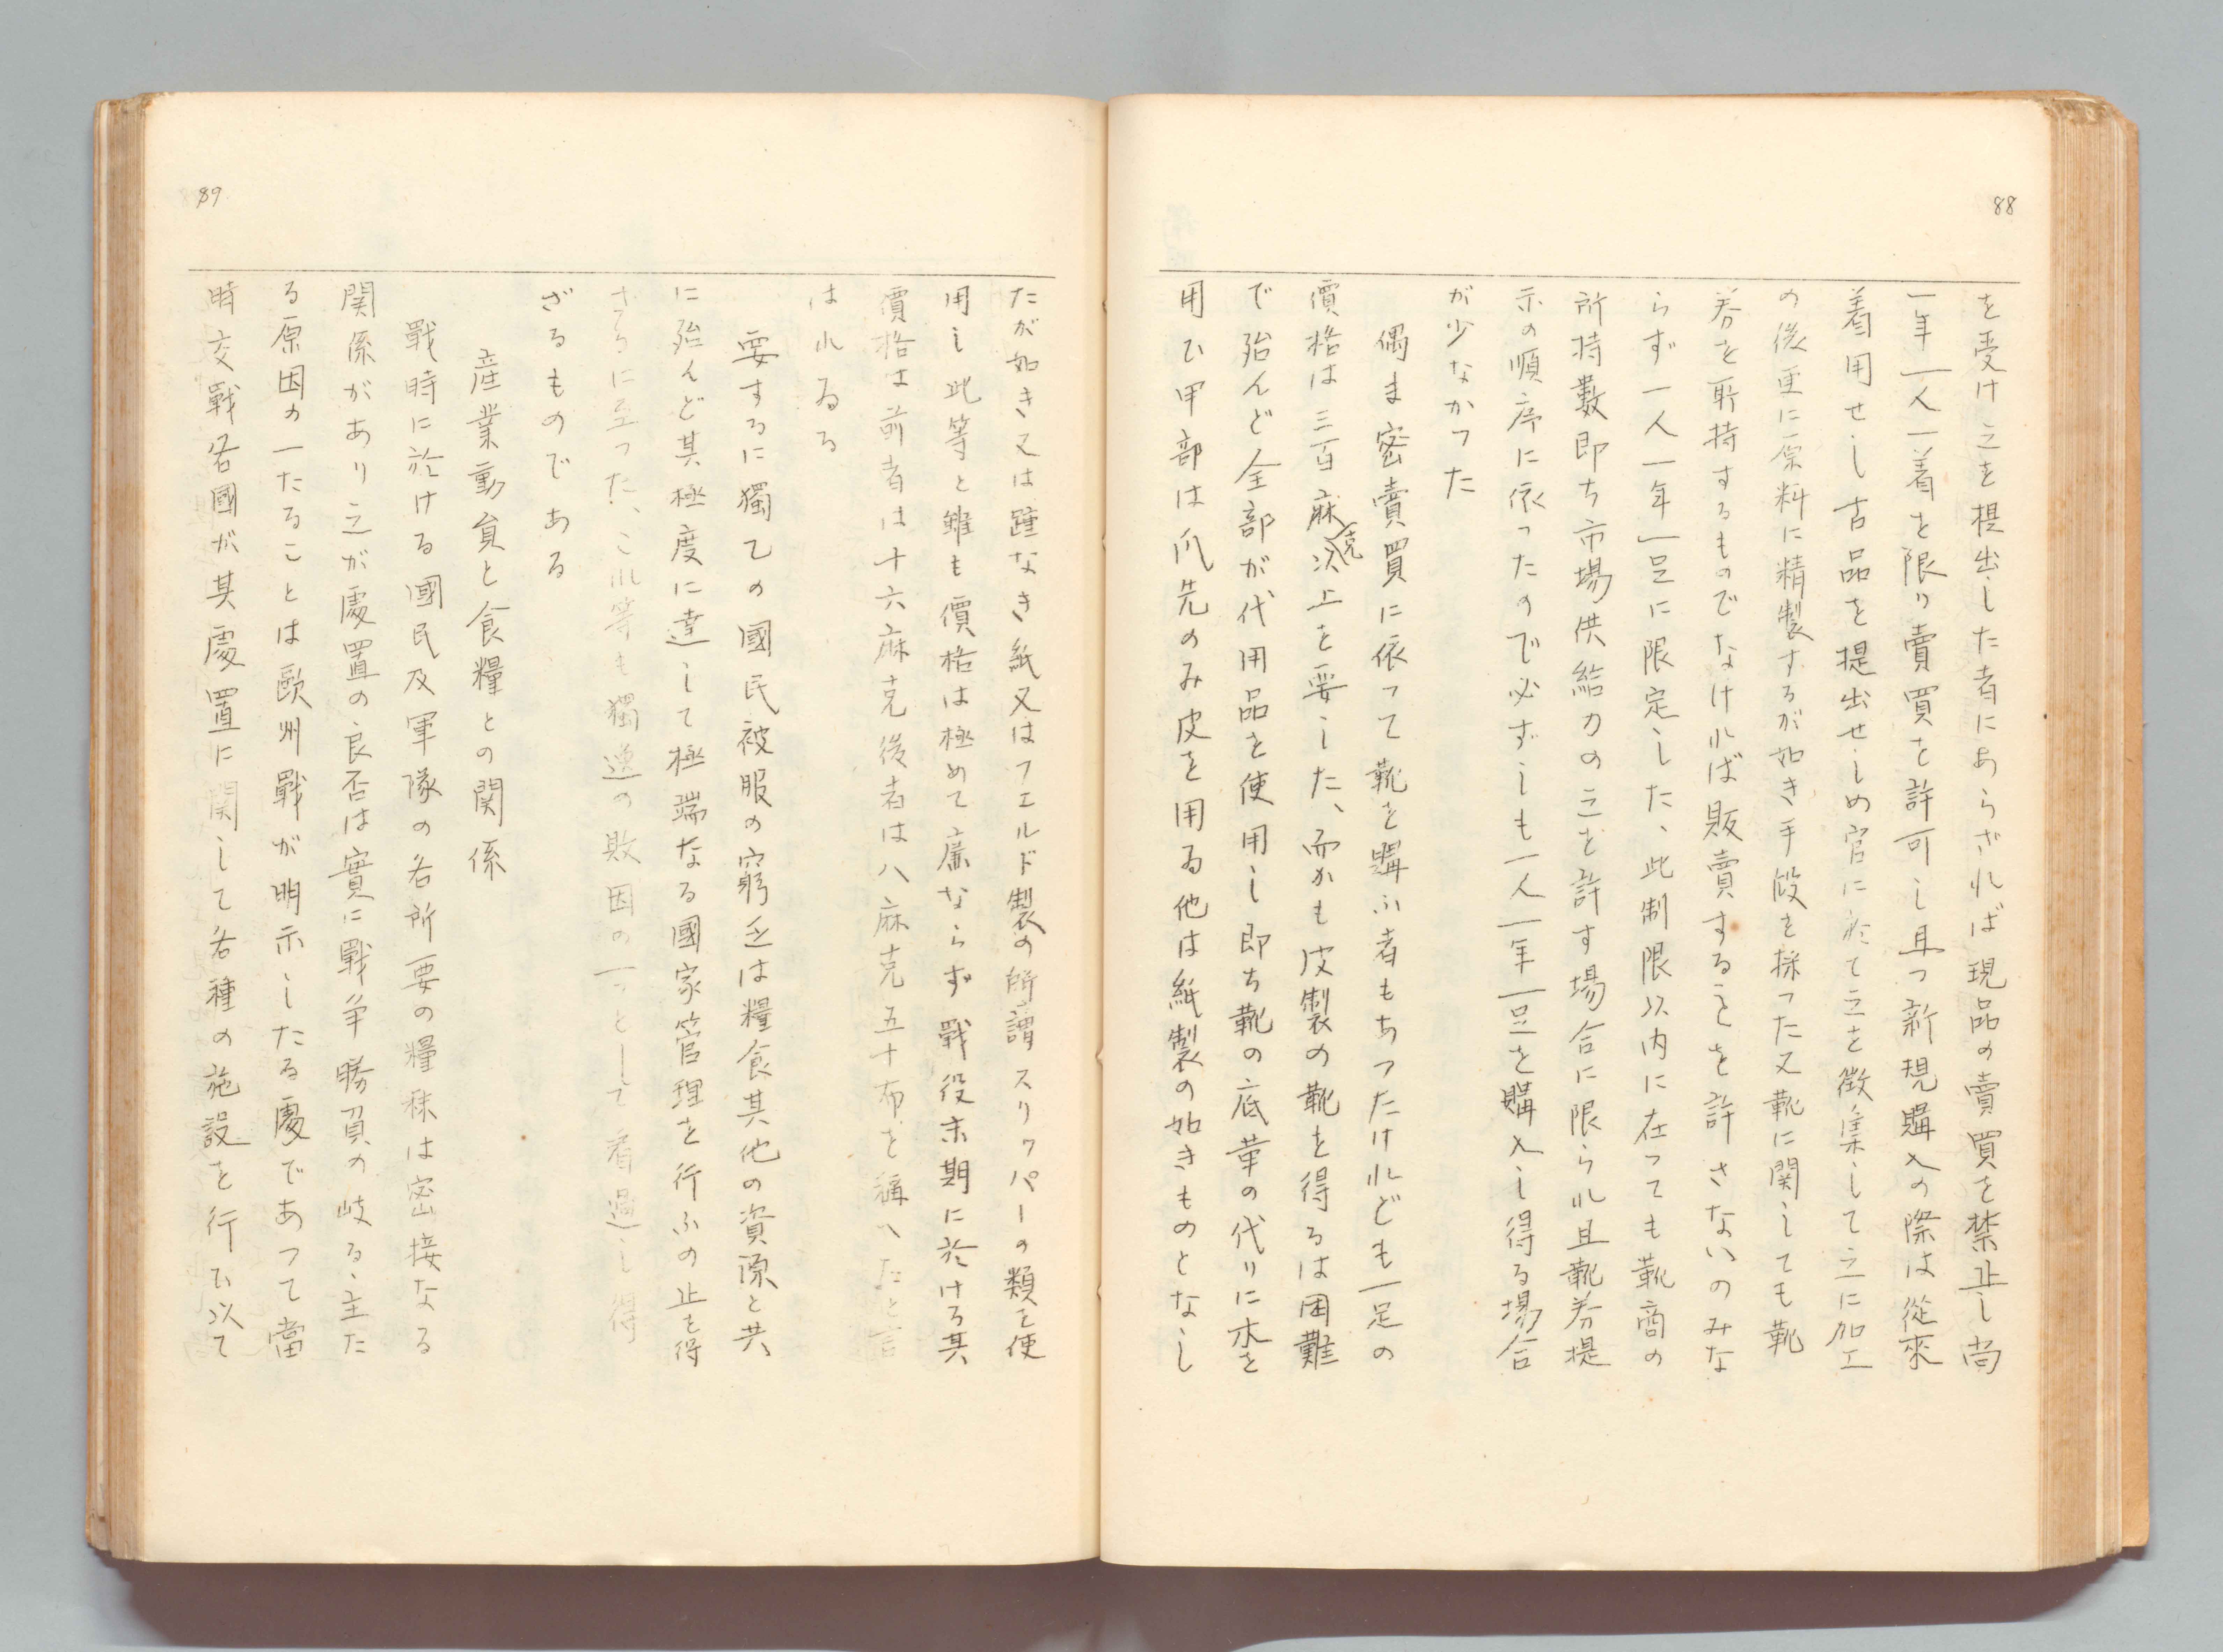 88
を受け之を提出した者にあらざれば現品の賣買を禁止し尚
一年一人一着を限り賣買を許可し且つ新規購入の際は從來
着用せし古品を提出せしめ官に於て之を徴集して之に加工
の後更に原料に精製するが如き手段を採つた又靴に関しても靴
券を所持するものでなければ販賣することを許さないのみな
らず一人一年一足に限定した、此制限以内に在つても靴商の
所持數即ち市場供給力の之を許す場合に限られ且靴券提
示の順序に依つたので必ずしも一人一年一足を購入し得る場合
が少なかつた
偶ま密賣買に依つて靴を購ふ者もあつたけれども一足の
價格は三百麻克以上を要した、而かも皮製の靴を得るは困難
で殆んど全部が代用品を使用し即ち靴の底革の代りに木を
用ひ甲部は爪先のみ皮を用る他は紙製の如きものとなし
89
たが如き又は踵なき紙又はフエルド製の所謂スリッパーの類を使
用し此等と雖も價格は極めて廉ならず戰役末期に於ける其
價格は前者は十六麻克後者は八麻克五十布を稱へたと言
はれゐる
要するに獨乙の國民被服の窮乏は糧食其他の資源と共
に殆んど其極度に達して極端なる國家管理を行ふの止を得
ざるに至つた、これ等も獨逸の敗因の一つとして看過し得
ざるものである
産業動員と食糧との関係
戰時に於ける國民及軍隊の各所要の糧秣は密接なる
関係があり之が處置の良否は實に戰争勝負の岐る主た
る原因の一たることは歐州戰が明示したる處であつて當
時交戰各國が其處置に関して各種の施設を行ひ以て